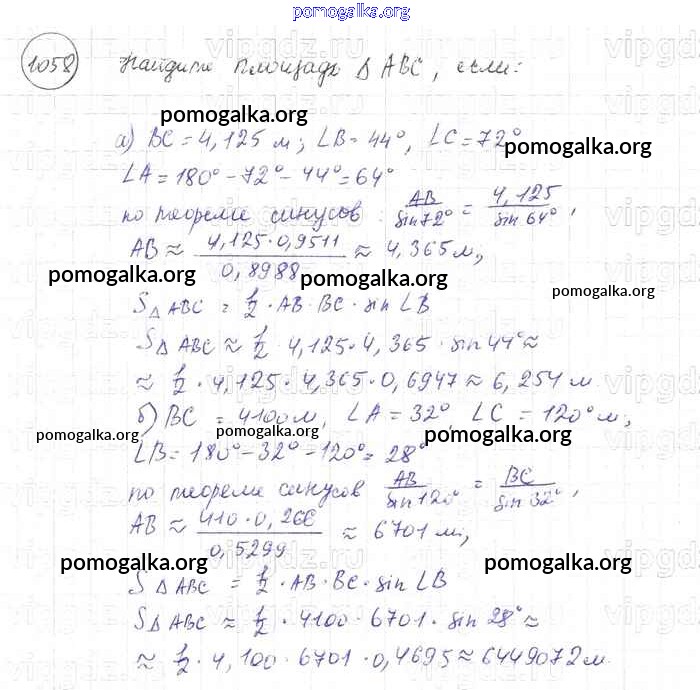 pomogalka.org
1058 Найдите площадь Δ ABC, если:
pomogalka.org
а) BC = 4,125 м; ∠B = 44°, ∠C = 72°
pomogalka.org
∠A = 180° - 72° - 44° = 64°
по теореме синусов: AB/sin72° = 4,125/sin 64°,
AB ≈ 4,125·0,9511/0,8988 ≈ 4,365 м;
pomogalka.org pomogalka.org
pomogalka.org
S Δ ABC = 1/2 · AB · BC · sin ∠B
S Δ ABC ≈ 1/2 · 4,125 · 4,365 · sin 44° ≈
≈ 1/2 · 4,125 · 4,365 · 0,6947 ≈ 6,254 м
б) BC = 4100 м, ∠A = 32°, ∠C = 120° м;
pomogalka.org pomogalka.org pomogalka.org
∠B = 180° - 32° - 120° = 28°
по теореме синусов AB/sin120° = BC/sin 32°,
AB ≈ 410·0,266/0,5299 ≈ 6701 м;
pomogalka.org pomogalka.org
S Δ ABC = 1/2 · AB · BC · sin ∠B
S Δ ABC ≈ 1/2 · 4100 · 6701 · sin 28° ≈
≈ 1/2 · 4,100 · 6701 · 0,4695 ≈ 6449072 м